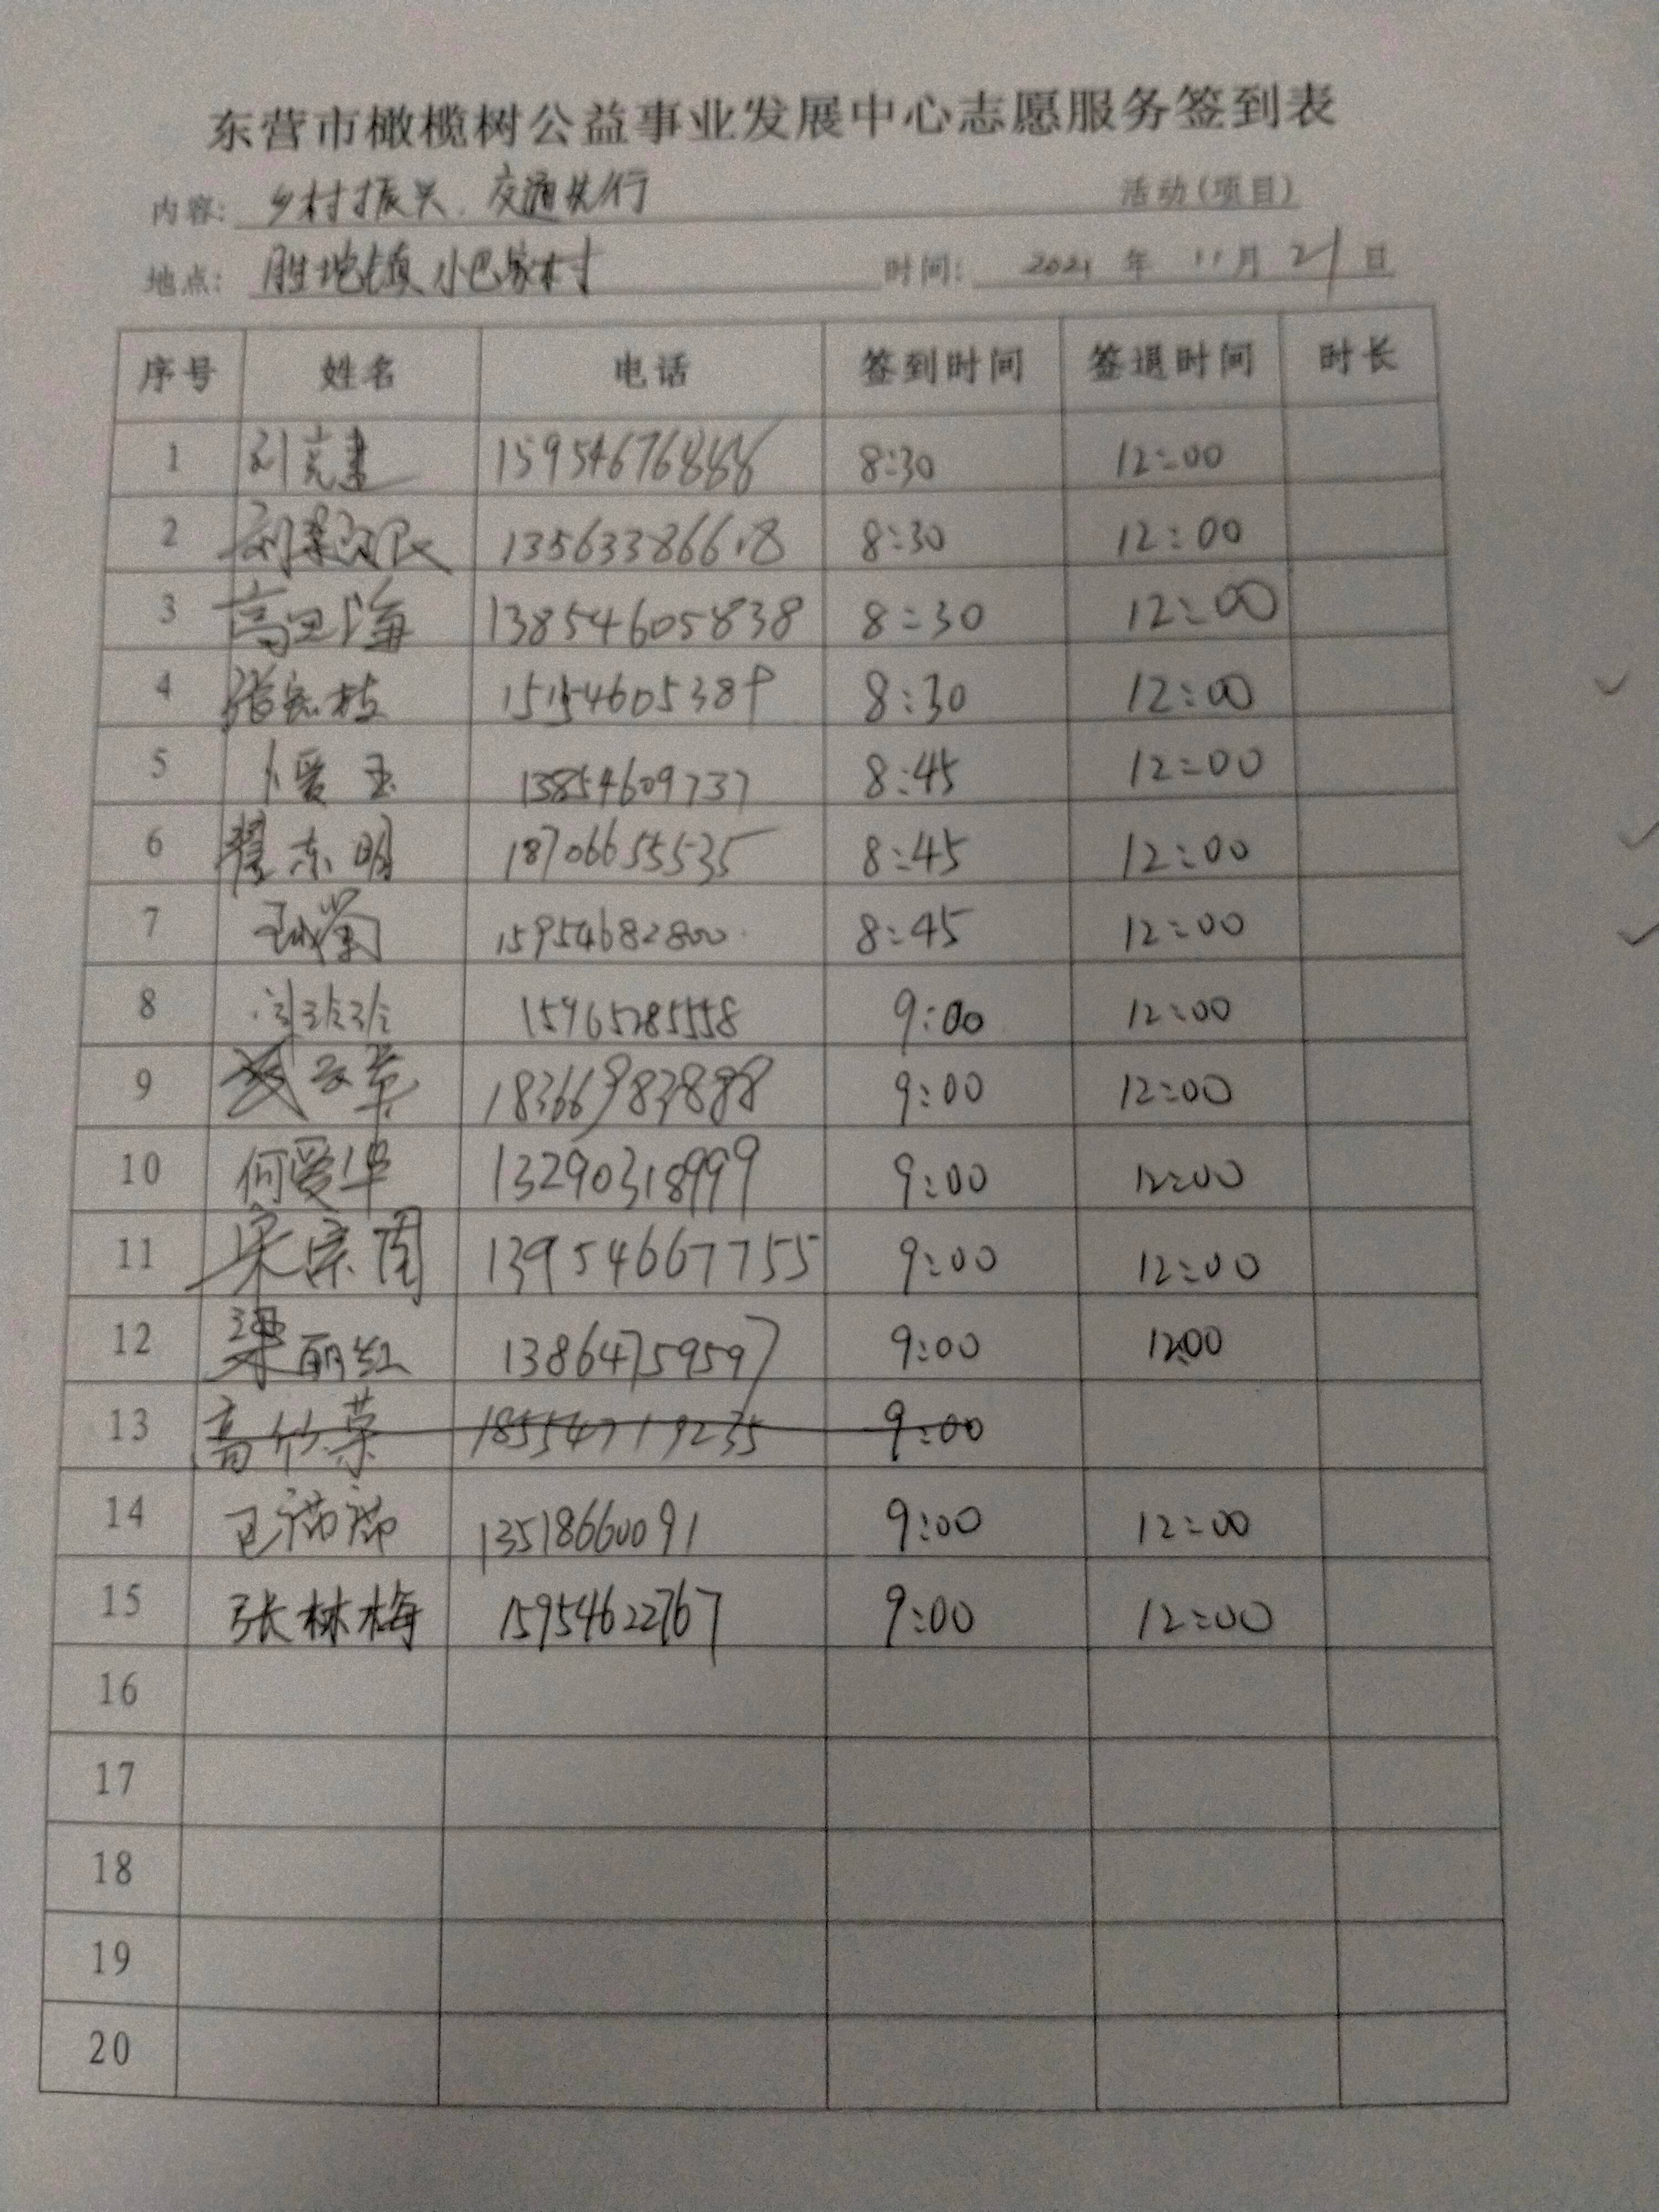 东营市橄榄树公益事业发展中心志愿服务签到表
内容: 乡村振兴、交通先行 活动(项目)
地点: 胜坨镇小巴家村 时间: 2021 年 11 月 21 日
序号 姓名 电话 签到时间 签退时间 时长
1 15954676888 8:30 12:00
2 13563386618 8:30 12:00
3 13854605838 8:30 12:00
4 15154605389 8:30 12:00
5 卜爱玉 13854609737 8:45 12:00
6 翟东明 18706655535 8:45 12:00
7 15954682800 8:45 12:00
8 15965285558 9:00 12:00
9 18366983888 9:00 12:00
10 何爱华 13290318999 9:00 12:00
11 宋宗国 13954667755 9:00 12:00
12 梁丽红 13864759597 9:00 12:00
13 18554719235 9:00
14 13518660091 9:00 12:00
15 张林梅 15954622767 9:00 12:00
16
17
18
19
20